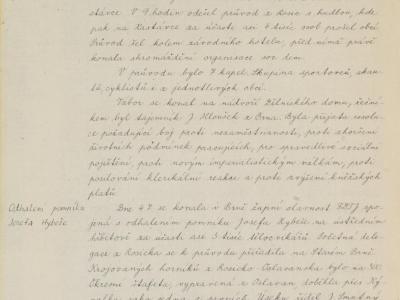 stávce. V 9 hodin odešel průvod z Rosic s hudbou, kde
pak na Kratávce za účasti asi 4 tisíc osob prošel obcí.
Průvod šel kolem závodního hotelu, před nímž právě
konala shromáždění organisace soc. dem.
V průvodu bylo 7 kapel. Skupina sportovců, skau-
tů, cyklistů i z jednotlivých obcí.
Tábor se konal na nádvoří Dělnického domu, řeční-
kem byl tajemník J. z Brna. Byla přijata resolu-
ce požadující boj proti nezaměstnanosti, proti zhoršení
životních podmínek pracujících, pro spravedlivé sociální
pojištění, proti novým imperialistickým válkám, proti
posilování klerikální reakce a proti zvýšení kněžských
platů.
Odhalení pomníku
Josefa Hybeše
Dne 4.7. se konala v Brně župní slavnost spo-
jená s odhalením pomníku Josefa Hybeše na ústředním
hřbitově za účasti asi 3 tisíc tělocvikářů. Početná dele-
gace z Rosicka se k průvodu přiřadila na Starém Brně.
Krojovaných horníků z Rosicko-Oslavanska bylo na 300.
Okrome štafeta, vypravená z Oslavan doběhla přes